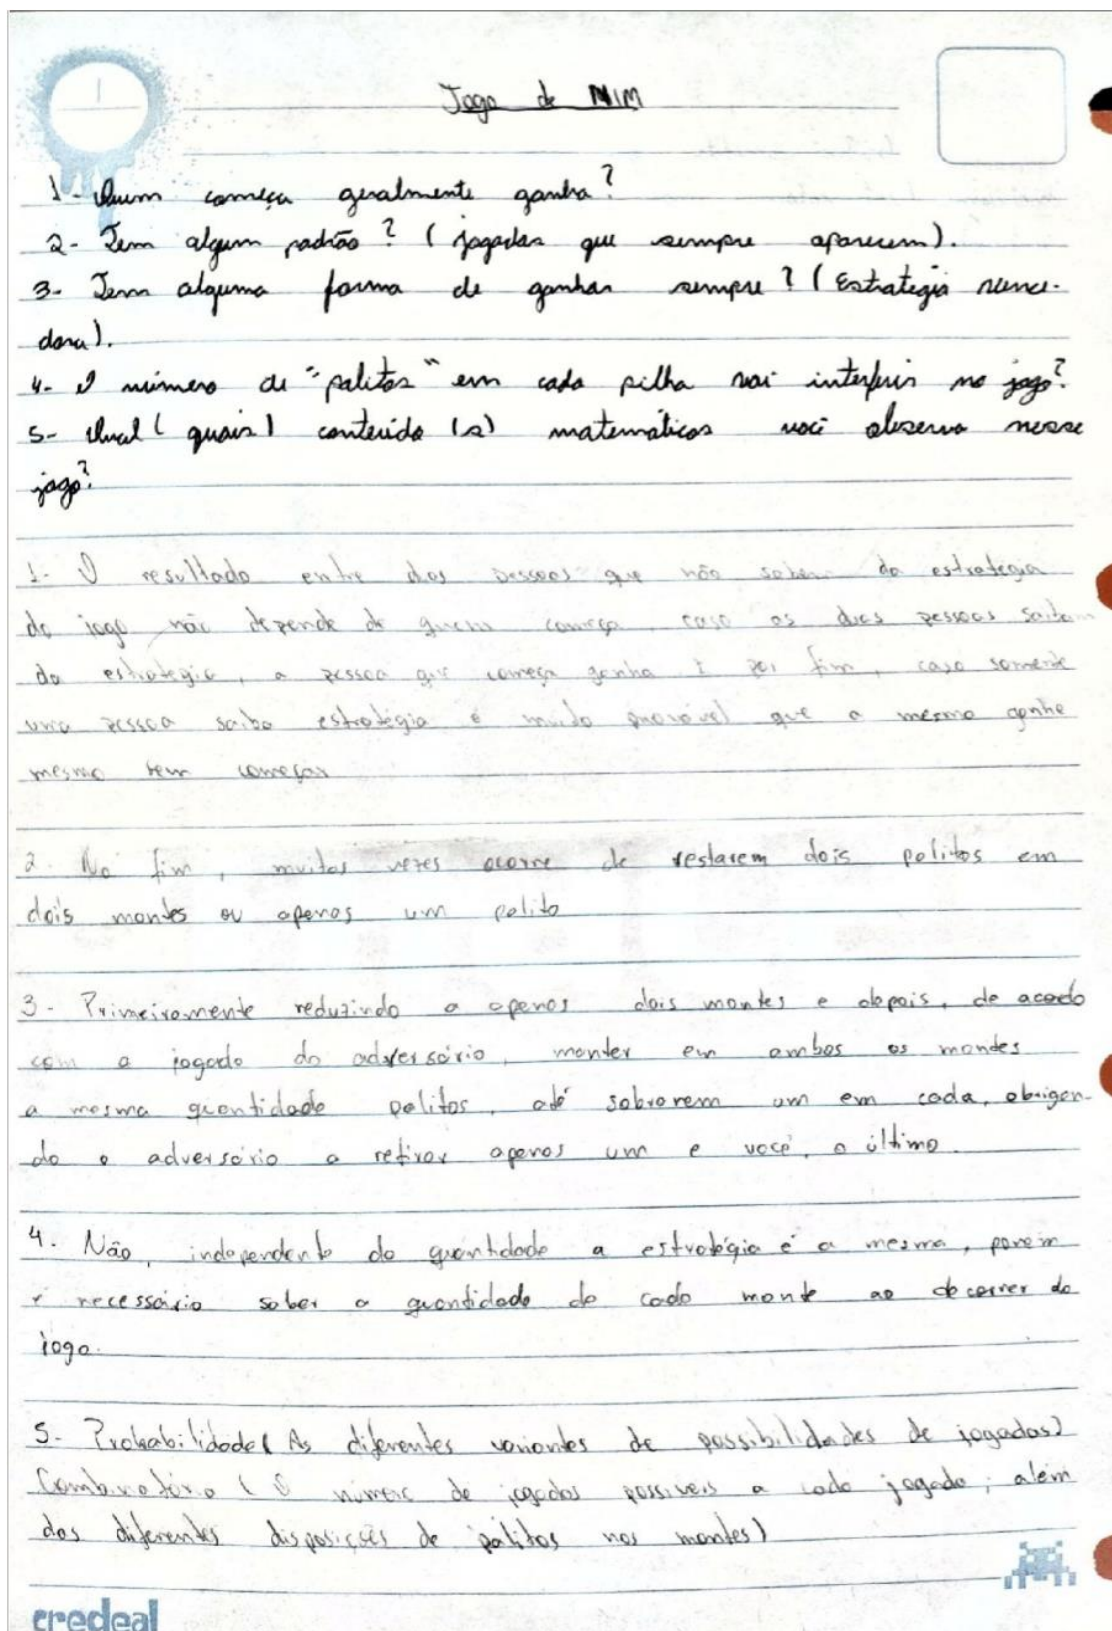 Jogo de NIM
1- Quem começa geralmente ganha?
2- Tem algum padrão? (jogadas que sempre aparecem).
3- Tem alguma forma de ganhar sempre? (Estrategia vence-
dora).
4- O número de "palitos" em cada pilha vai interferir no jogo?
5- Qual (quais) conteúdo (s) matemáticos você observa nesse
jogo?
1- O resultado entre duas pessoas que não sabem da estrategia
do jogo não depende de quem começa, caso as duas pessoas saibam
da estrategia, a pessoa que começa ganha E por fim, caso somente
uma pessoa saiba estratégia é muito provável que a mesma ganhe
mesmo sem começar
2. No fim, muitas vezes ocorre de restarem dois palitos em
dois montes ou apenas um palito
3- Primeiramente reduzindo a apenas dois montes e depois, de acordo
com a jogada do adversário, manter em ambos os montes
a mesma quantidade palitos, até sobrarem um em cada, obrigan-
do o adversário a retirar apenas um e você, o último.
4. Não, independente da quantidade a estratégia é a mesma, porém
é necessário saber a quantidade de cada monte ao decorrer do
jogo.
5- Probabilidade (As diferentes variantes de possibilidades de jogadas)
Combinatória (O número de jogadas possíveis a cada jogada, além
das diferentes disposições de palitos nos montes)
credeal